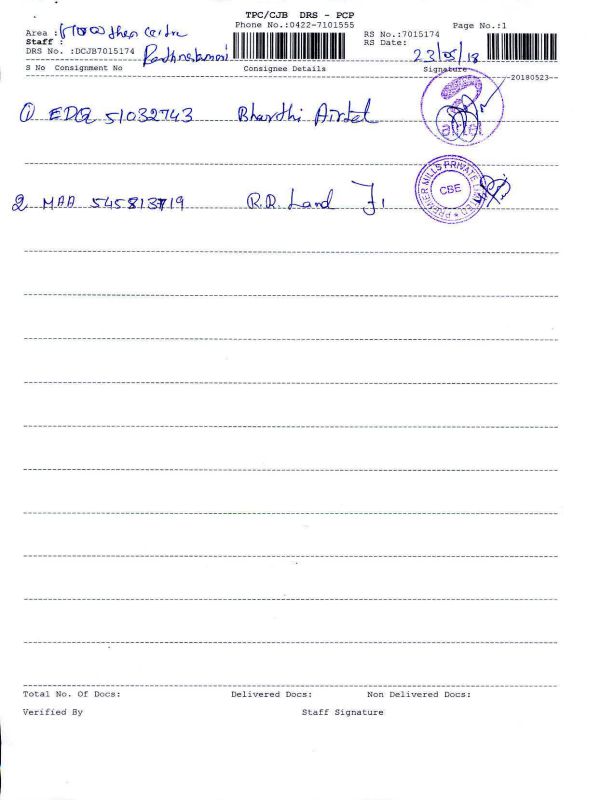 TPC/CJB DRS - PCP
Phone No.:0422-7101555 Page No.:1
Area :
Staff :
RS No.:7015174
RS Date: 23/05/18
DRS No. :DCJB7015174
S No Consignment No Consignee Details Signature
20180523
1 EDQ 51032743 Bharthi Airtel
airtel
PREMIER MILLS PRIVATE LIMITED
CBE
2 MAA 545813719 R.R. Land
Total No. Of Docs: Delivered Docs: Non Delivered Docs:
Verified By Staff Signature